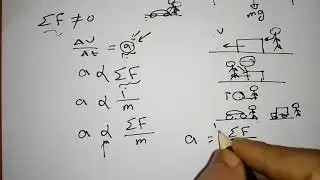 ΣF ≠ 0
Δv/Δt = a
a α ΣF
a α 1/m
a α ΣF/m
a = ΣF
mg
v